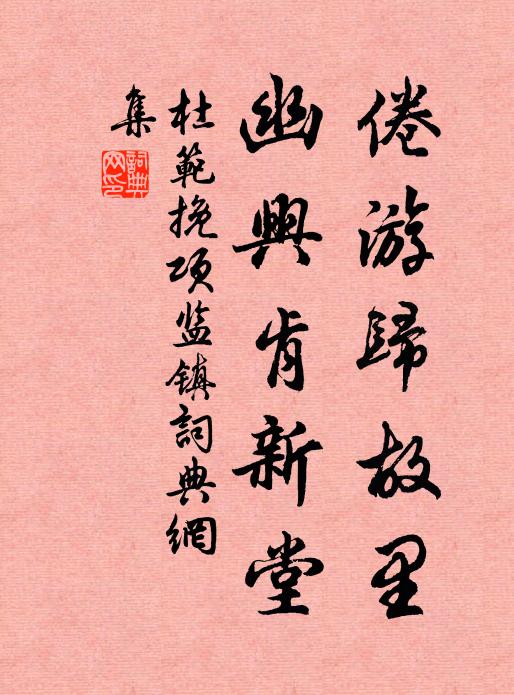 倦游歸故里
幽興肯新堂
杜範挽项监镇詞典網
集
詞典
网印